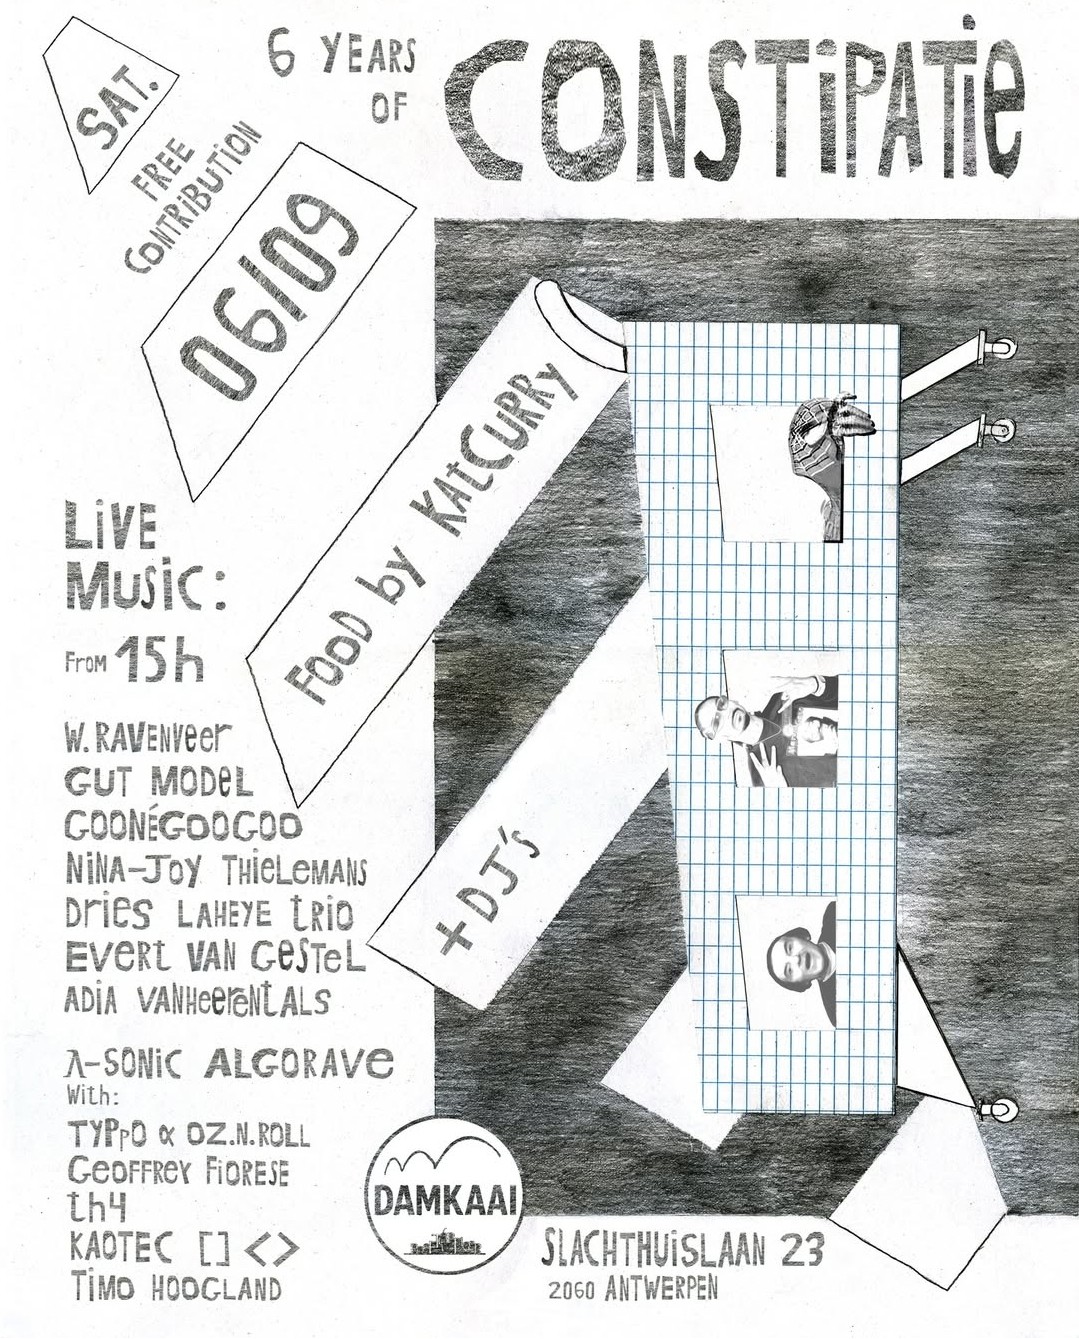 SAT.
6 YEARS
OF
CONSTiPATiE
FREE
CONTRiBUTiON
06/09
FOOD by KAtCURRY
LiVE
MUSiC:
FROM 15h
W. RAVENVeer
GUT MODEL
GOONÉGOOGOO
NiNA-JOY THIELEMANS
Dries LAHEYE tRIO
EVERt VAN GeSTeL
ADiA VANHeereNtALS
+ DJ'S
λ-SONiC ALGORAVe
With:
TYPpO ∝ OZ.N.ROLL
GEOFFREY FiORESE
th4
KAOTEC [] <>
TiMO HOOGLAND
DAMKAAI
SLACHTHUiSLAAN 23
2060 ANTWERPEN